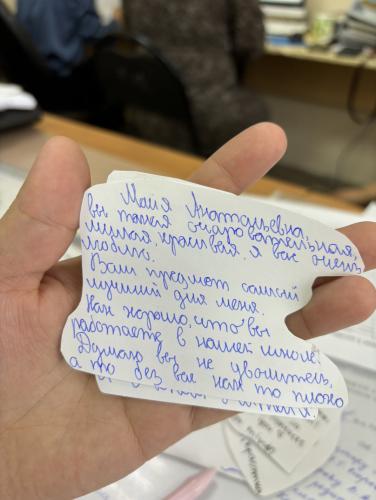 Майя Анатальевна,
вы такая очаровательная,
милая, красивая. я вас очень
люблю.
Ваш предмет самый
лучший для меня.
Как хорошо, что вы
работаете в нашей школе.
Думаю вы не уволитесь,
а то без вас нам то плохо